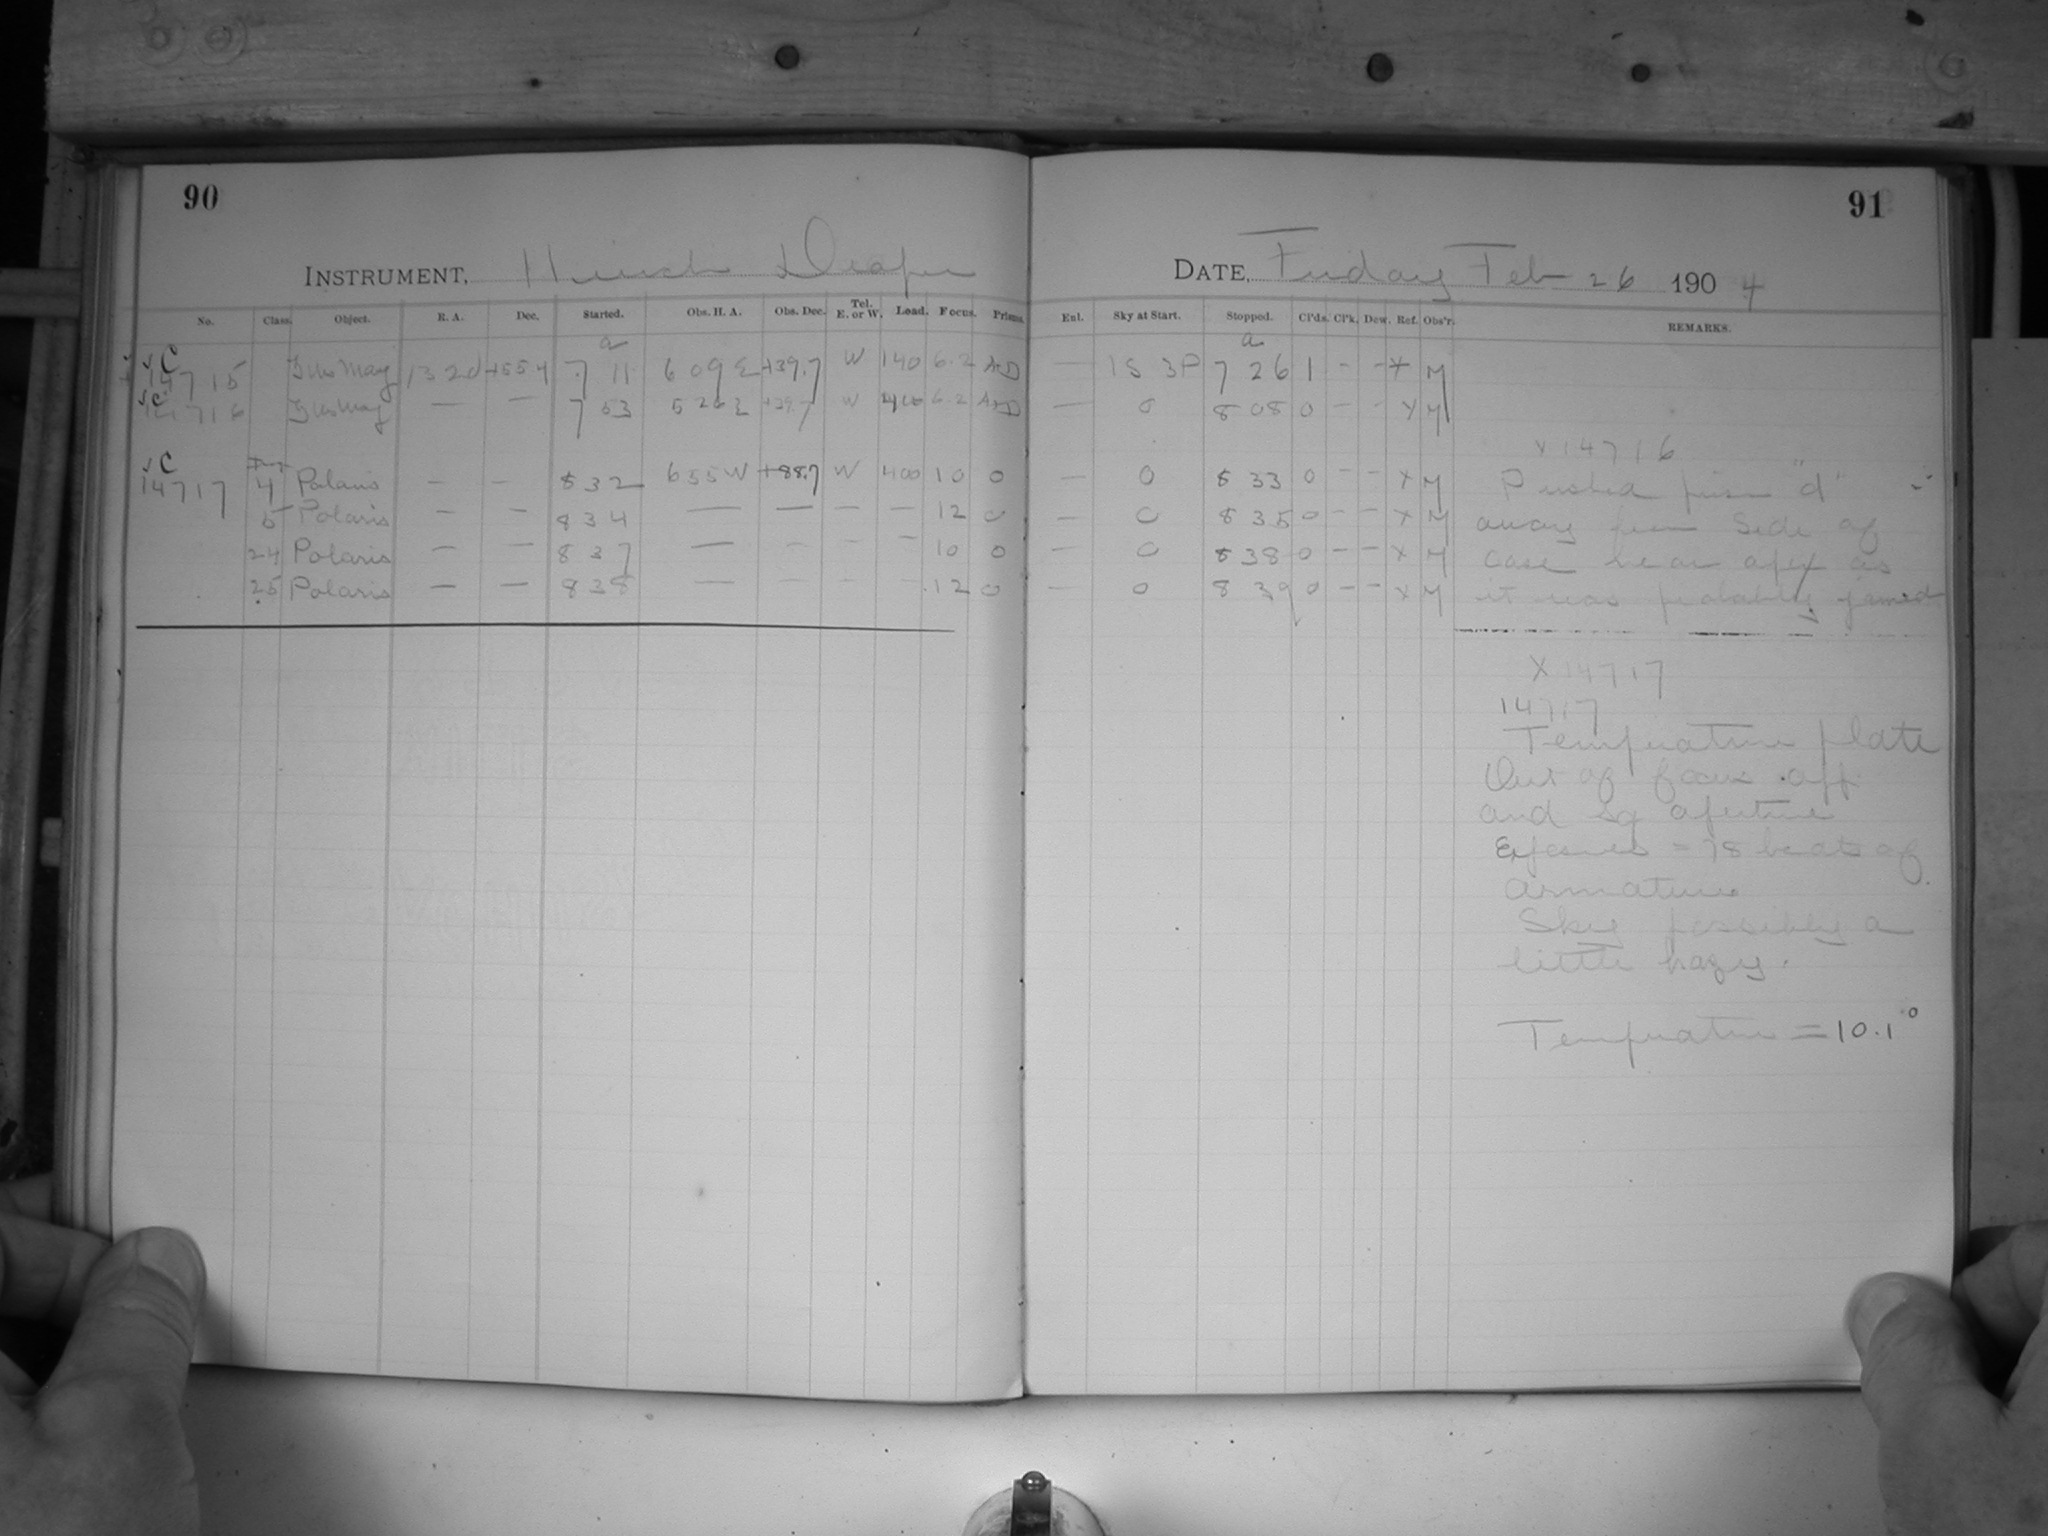 90
INSTRUMENT, Draper
No. Class. Object. R. A. Dec. Started. Obs. H. A. Obs. Dec. Tel. E. or W. Load. Focus. Prisms.
C 14715 13 20 +55 4 7 11 a 6 09 E +39.7 W 140 6.2
C 14716 — — 7 53 5 26 E +39.7 W 400 6.2
C 14717 4 Polaris — — 8 32 6 55 W +88.7 W 400 10 0
5 Polaris — — 8 34 — — — — 12 0
24 Polaris — — 8 37 — — — — 10 0
25 Polaris — — 8 38 — — — — 12 0
91
DATE, Friday Feb 26 1904
Enl. Sky at Start. Stopped. Cl'ds. Cl'k. Dew. Ref. Obs'r. REMARKS.
— 1S 3P 7 26 a 1 - - x M
— 0 8 08 0 - - x M
x 14716
— 0 8 33 0 - - x M Pushed prism "d"
— 0 8 35 0 - - x M away from side of
— 0 8 38 0 - - x M case near apex as
— 0 8 39 0 - - x M it was probably jamed
X 14717
14717
Temperature plate
Out of focus
and sq aperture
Exposures = 78 beats of
armature
Sky possibly a
little hazy.
Temperature = 10.1°